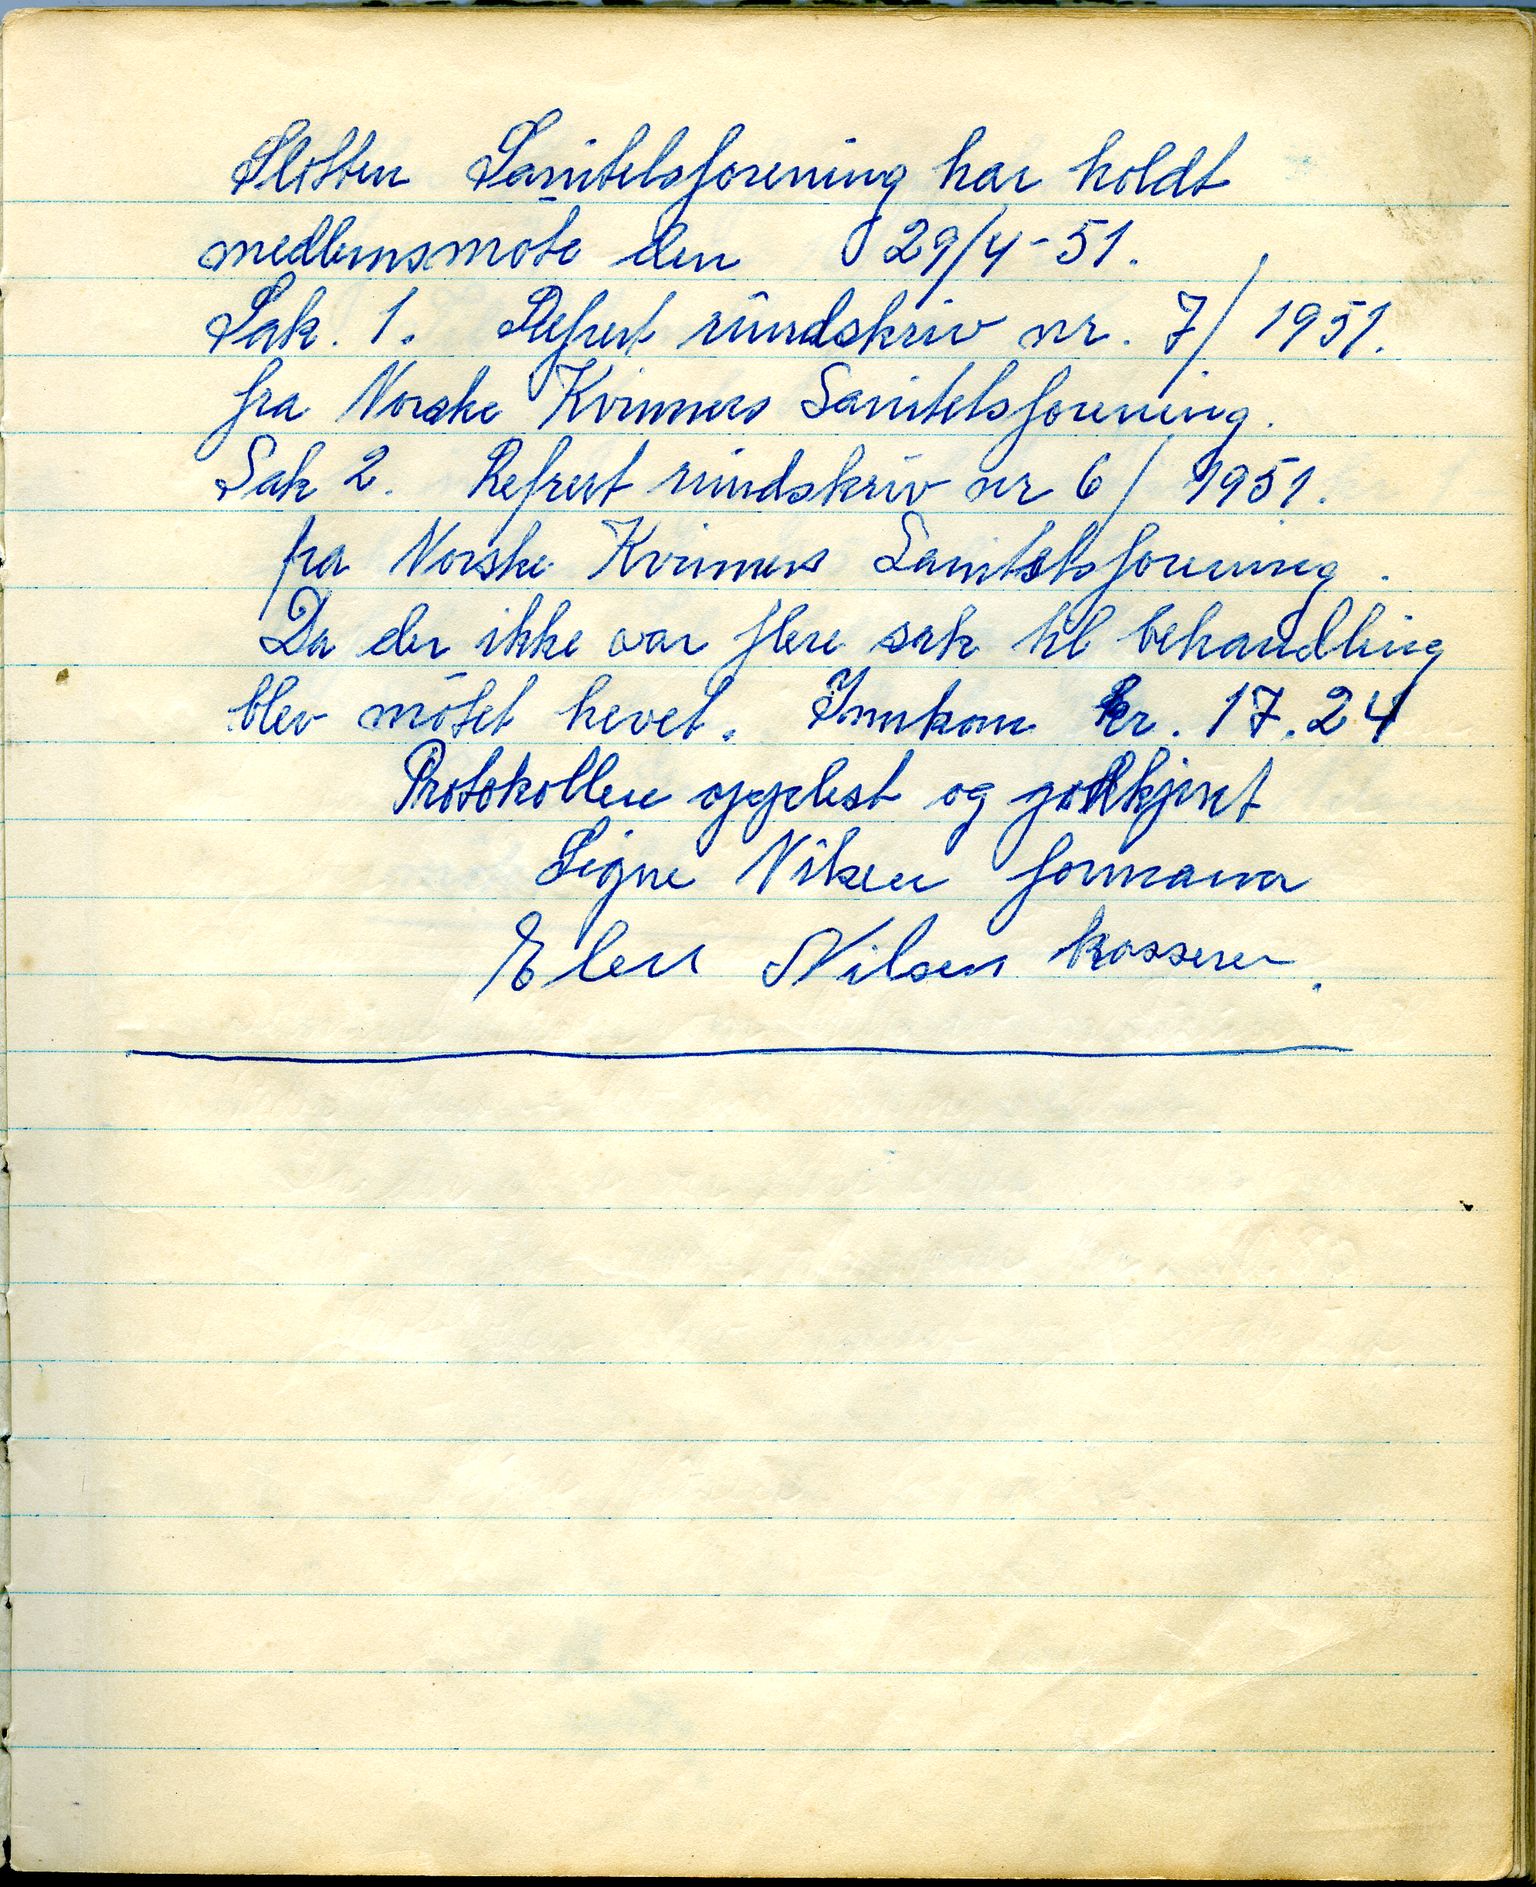 Slotten Sanitetsforening har holdt
medlemsmöte den 29/4-51.
Sak. 1. Refrert rundskriv nr. 7/ 1951.
fra Norske Kvinners Sanitetsforening.
Sak 2. Refrert rundskriv nr 6/ 1951.
fra Norske Kvinners Sanitetsforening.
Da der ikke var flere sak til behandling
blev mötet hevet. Innkom kr. 17.24
Protokollen opplest og godkjent
Signe Nilsen formann
Elen Nilsen kasserer.